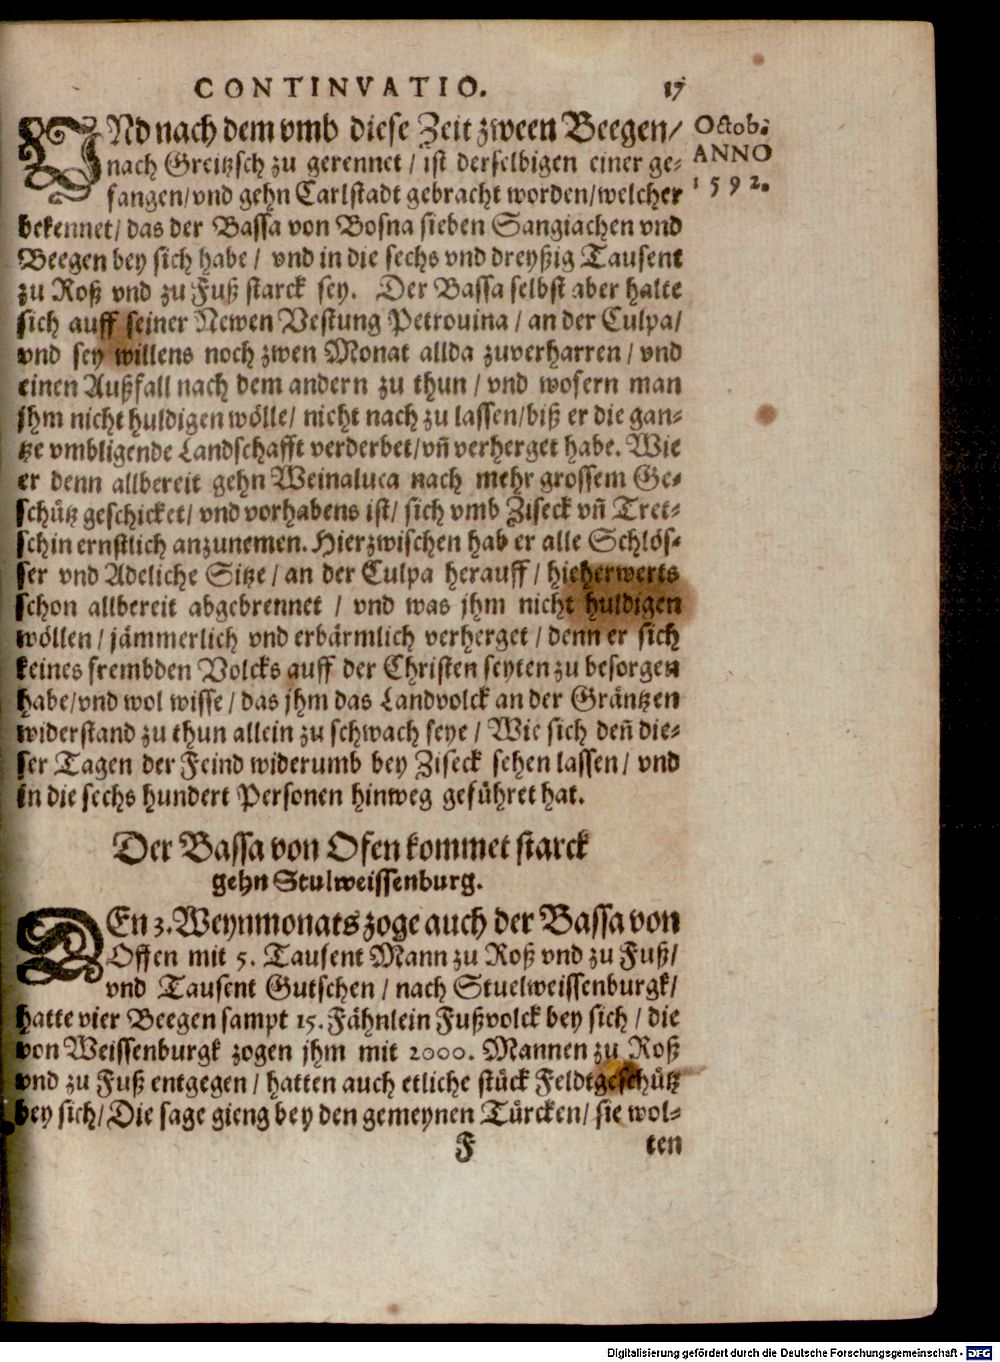 CONTINVATIO. 17
Octob.
ANNO
1592.
VNd nach dem vmb diese Zeit zween Beegen/
nach Greitzsch zu gerennet / ist derselbigen einer ge-
fangen/vnd gehn Carlstadt gebracht worden/welcher
bekennet/ das der Bassa von Bosna sieben Sangiachen vnd
Beegen bey sich habe / vnd in die sechs vnd dreyßig Tausent
zu Roß vnd zu Fuß starck sey. Der Bassa selbst aber halte
sich auff seiner Newen Vestung Petrouina / an der Culpa/
vnd sey willens noch zwen Monat allda zuverharren / vnd
einen Außfall nach dem andern zu thun / vnd wofern man
jhm nicht huldigen wölle/ nicht nach zu lassen/biß er die gan-
tze vmbligende Landschafft verderbet/vñ verherget habe. Wie
er denn allbereit gehn Weinaluca nach mehr grossem Ge-
schütz geschicket/ vnd vorhabens ist/ sich vmb Ziseck vñ Tret-
schin ernstlich anzunemen. Hierzwischen hab er alle Schlös-
ser vnd Adeliche Sitze / an der Culpa herauff / hieherwerts
schon allbereit abgebrennet / vnd was jhm nicht huldigen
wöllen / jämmerlich vnd erbärmlich verherget / denn er sich
keines frembden Volcks auff der Christen seyten zu besorgen
habe/vnd wol wisse / das jhm das Landvolck an der Gräntzen
widerstand zu thun allein zu schwach seye / Wie sich deñ die-
ser Tagen der Feind widerumb bey Ziseck sehen lassen / vnd
in die sechs hundert Personen hinweg geführet hat.
Der Bassa von Ofen kommet starck
gehn Stulweissenburg.
DEn 3. Weynmonats zoge auch der Bassa von
Offen mit 5. Tausent Mann zu Roß vnd zu Fuß/
vnd Tausent Gutschen / nach Stuelweissenburgk/
hatte vier Beegen sampt 15. Fähnlein Fußvolck bey sich / die
von Weissenburgk zogen jhm mit 2000. Mannen zu Roß
vnd zu Fuß entgegen / hatten auch etliche stück Feldtgeschütz
bey sich/ Die sage gieng bey den gemeynen Türcken/ sie wol-
F ten
Digitalisierung gefördert durch die Deutsche Forschungsgemeinschaft - DFG